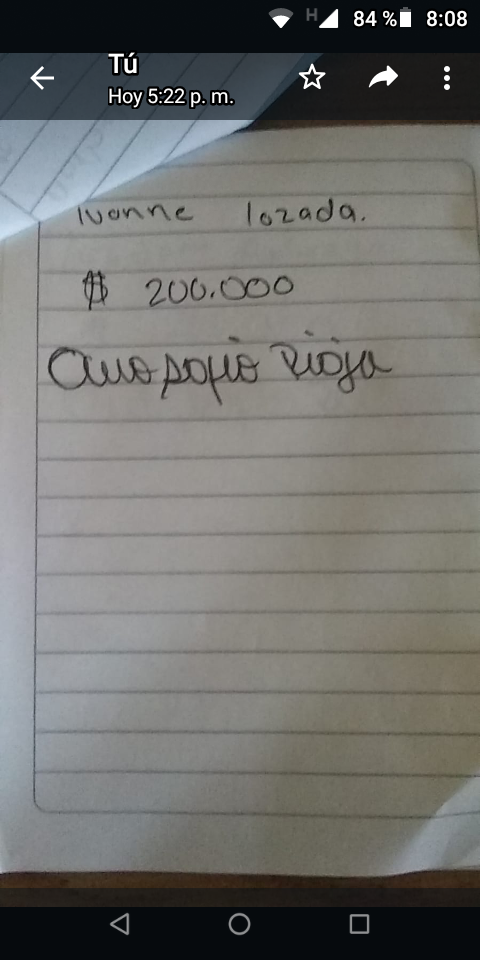 H 84 % 8:08
Tú
Hoy 5:22 p. m.
Ivonne lozada.
$ 200.000
Ana sofia Rioja